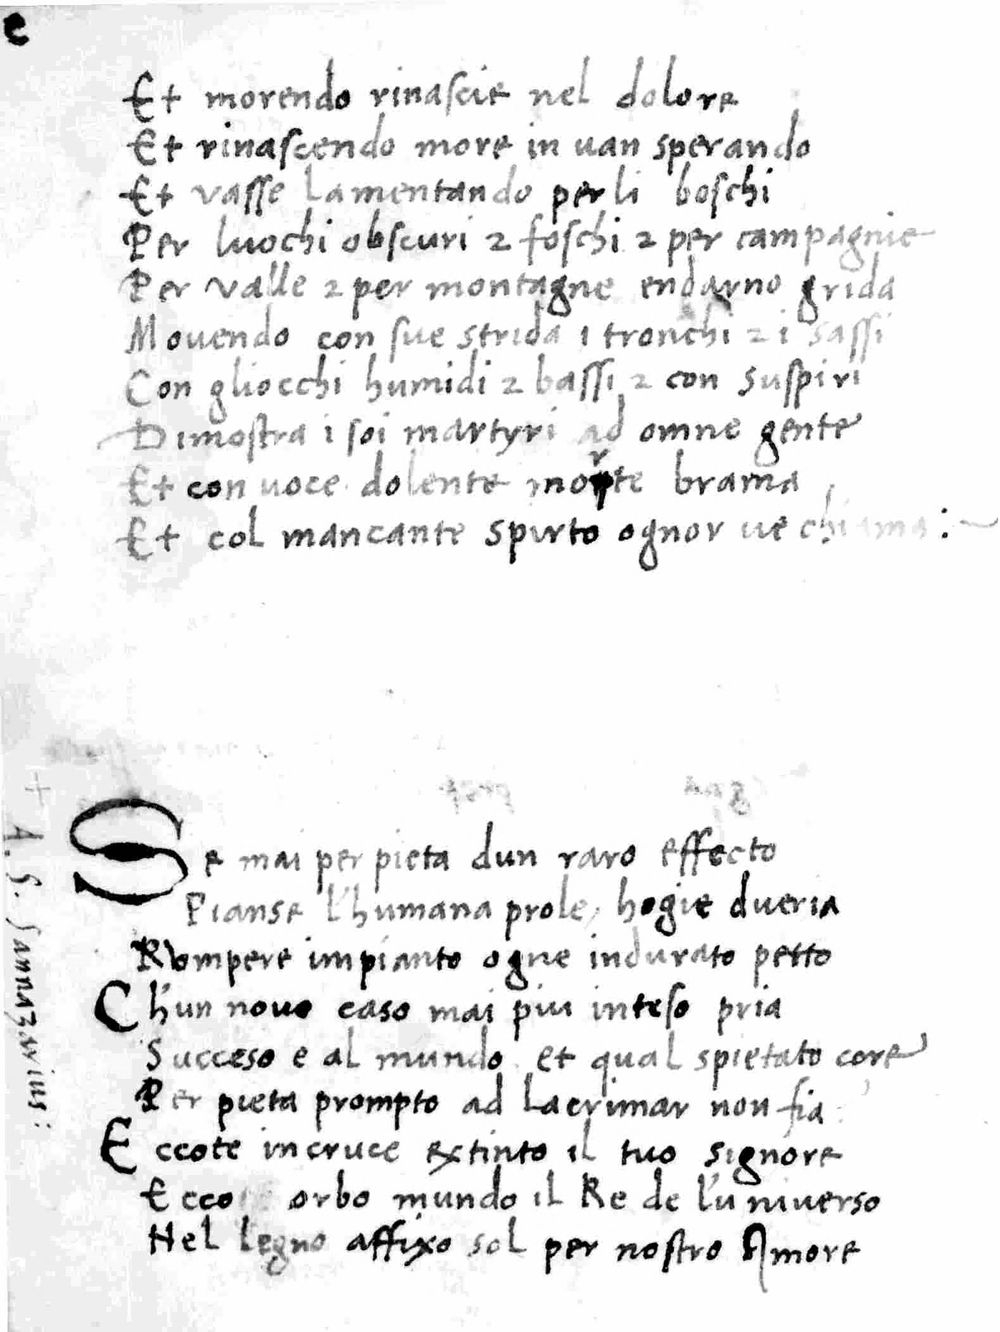 e
Et morendo rinascie nel dolore
Et rinascendo more in uan sperando
Et vasse lamentando per li boschi
Per luochi obscuri 2 foschi 2 per campagnie
Per valle 2 per montagne endarno grida
Mouendo con sue strida i tronchi 2 i sassi
Con gliocchi humidi 2 bassi 2 con suspiri
Dimostra i soi martyri ad omne gente
Et con uoce dolente morte brama
Et col mancante spirto ognor ue chiama :~
Se mai per pieta dun raro effecto
Pianse l'humana prole, hogie dueria
Rompere impianto ogne indurato petto
Ch'un nouo caso mai piu inteso pria
Succeso e al mundo . et qual spietato core
Per pieta prompto ad lacrimar non fia
Eccote in cruce extinto il tuo signore
Ecco orbo mundo il Re de l'uniuerso
Nel legno affixo sol per nostro Amore
+ A. S. Sannazarius :